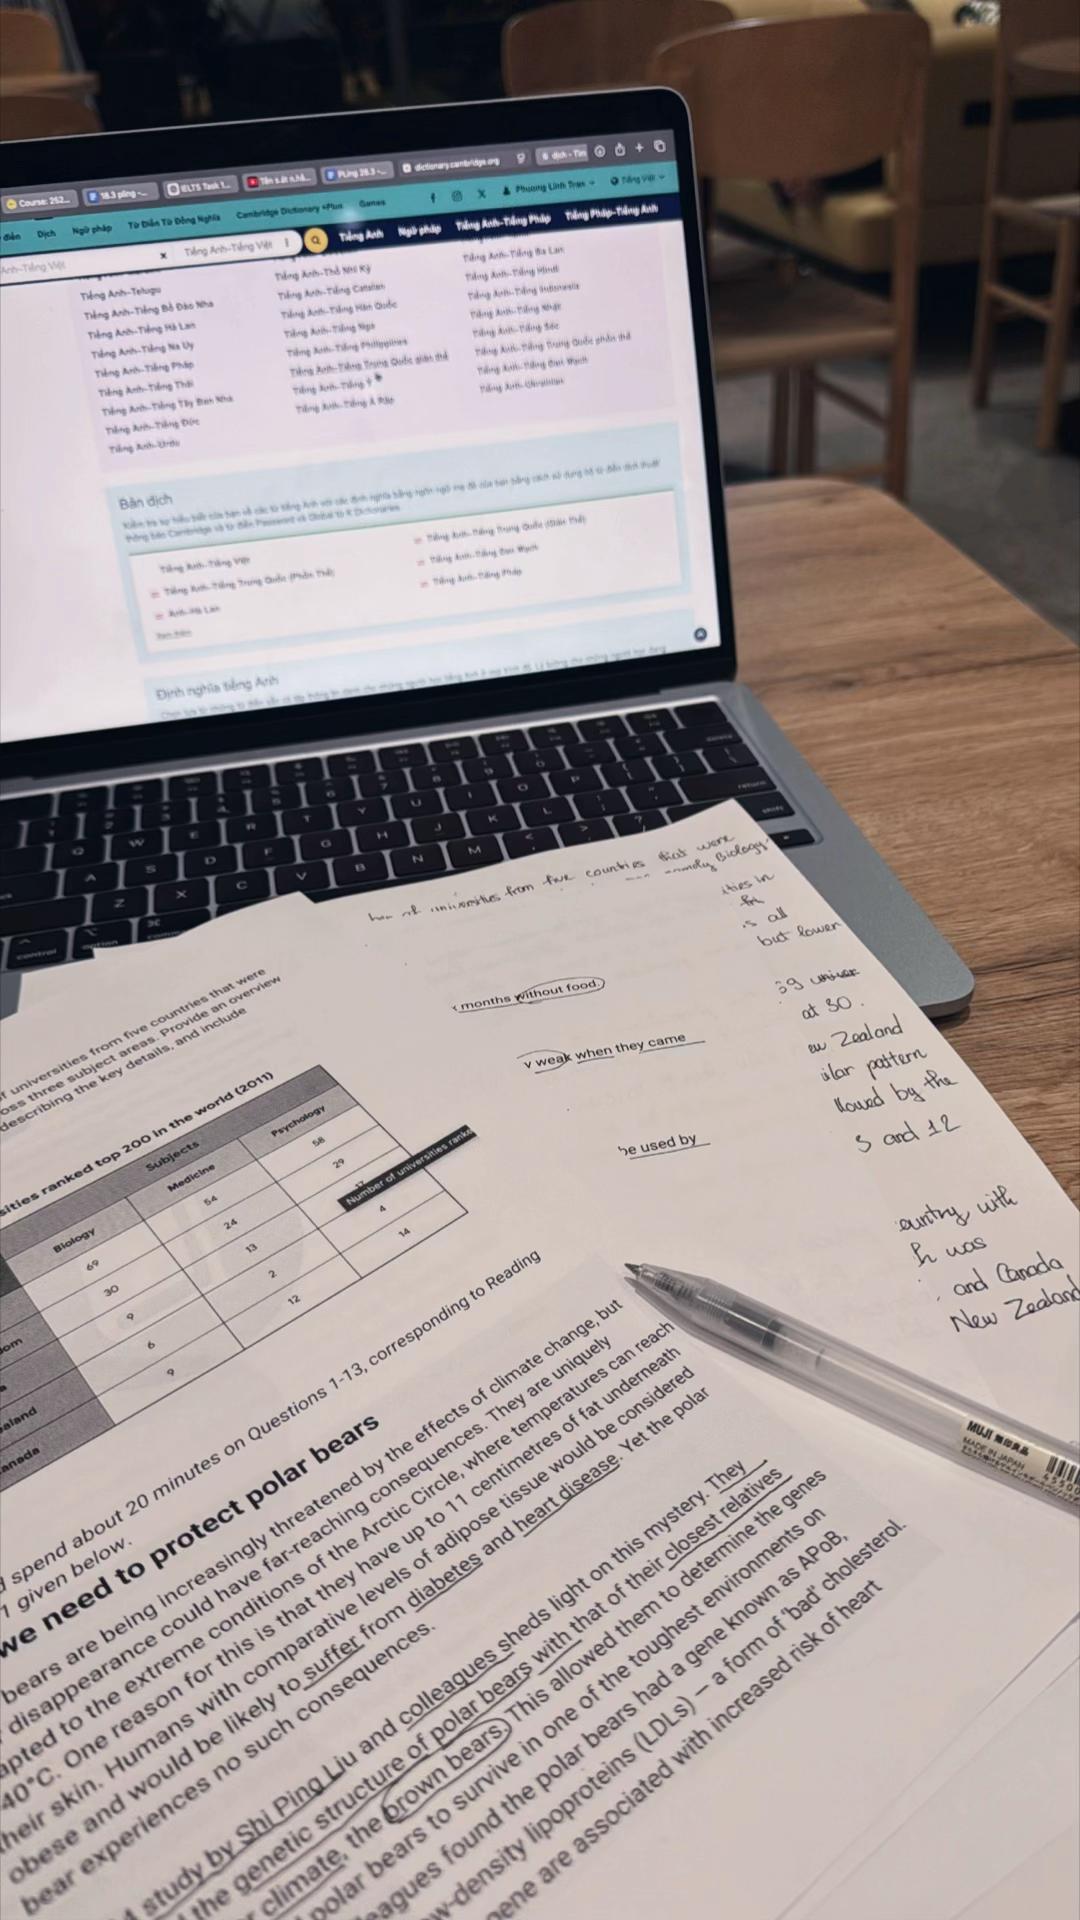 Course: 252...
18.3 pling -...
IELTS Task 1...
PLing 28.3 -...
dictionary.cambridge.org
dịch - Tìm
điển
Dịch
Ngữ pháp
Từ Điển Từ Đồng Nghĩa
Cambridge Dictionary +Plus
Games
Phuong Linh Tran
Tiếng Việt
Anh-Tiếng Việt
Tiếng Anh-Tiếng Việt
Tiếng Anh
Ngữ pháp
Tiếng Anh-Tiếng Pháp
Tiếng Pháp-Tiếng Anh
Tiếng Anh-Telugu
Tiếng Anh-Tiếng Bồ Đào Nha
Tiếng Anh-Tiếng Hà Lan
Tiếng Anh-Tiếng Na Uy
Tiếng Anh-Tiếng Pháp
Tiếng Anh-Tiếng Thái
Tiếng Anh-Tiếng Tây Ban Nha
Tiếng Anh-Tiếng Đức
Tiếng Anh-Urdu
Tiếng Anh-Thổ Nhĩ Kỳ
Tiếng Anh-Tiếng Catalan
Tiếng Anh-Tiếng Hàn Quốc
Tiếng Anh-Tiếng Nga
Tiếng Anh-Tiếng Philippines
Tiếng Anh-Tiếng Trung Quốc giản thể
Tiếng Anh-Tiếng Ý
Tiếng Anh-Tiếng Ả Rập
Tiếng Anh-Tiếng Ba Lan
Tiếng Anh-Tiếng Hindi
Tiếng Anh-Tiếng Indonesia
Tiếng Anh-Tiếng Nhật
Tiếng Anh-Tiếng Séc
Tiếng Anh-Tiếng Trung Quốc phồn thể
Tiếng Anh-Tiếng Đan Mạch
Tiếng Anh-Ukrainian
Bản dịch
Tiếng Anh-Tiếng Việt
Tiếng Anh-Tiếng Trung Quốc (Phồn Thể)
Anh-Hà Lan
Xem thêm
Tiếng Anh-Tiếng Trung Quốc (Giản Thể)
Tiếng Anh-Tiếng Đan Mạch
Tiếng Anh-Tiếng Pháp
Định nghĩa tiếng Anh
delete
return
shift
Q W E R T Y U I O P
A S D F G H J K L
Z X C V B N M
control
option
universities from five countries that were
namely Biology
ities in
is all
but lower
59 univer
at 30.
ew Zealand
ilar pattern
llowed by the
3 and 12
ountry with
h was
and Canada
New Zealand
months without food.
y weak when they came
be used by
of universities from five countries that were
oss three subject areas. Provide an overview
describing the key details, and include
sities ranked top 200 in the world (2011)
Subjects
Biology Medicine Psychology
69 54 58
30 24 29
9 13 17
6 2 4
9 12 14
om
aland
anada
Number of universities ranke
spend about 20 minutes on Questions 1-13, corresponding to Reading
1 given below.
we need to protect polar bears
bears are being increasingly threatened by the effects of climate change, but
disappearance could have far-reaching consequences. They are uniquely
apted to the extreme conditions of the Arctic Circle, where temperatures can reach
40°C. One reason for this is that they have up to 11 centimetres of fat underneath
their skin. Humans with comparative levels of adipose tissue would be considered
obese and would be likely to suffer from diabetes and heart disease. Yet the polar
bear experiences no such consequences.
study by Shi Ping Liu and colleagues sheds light on this mystery. They
the genetic structure of polar bears with that of their closest relatives
climate, the brown bears. This allowed them to determine the genes
polar bears to survive in one of the toughest environments on
eagues found the polar bears had a gene known as APoB,
w-density lipoproteins (LDLs) – a form of 'bad' cholesterol.
gene are associated with increased risk of heart
MUJI 無印良品
MADE IN JAPAN